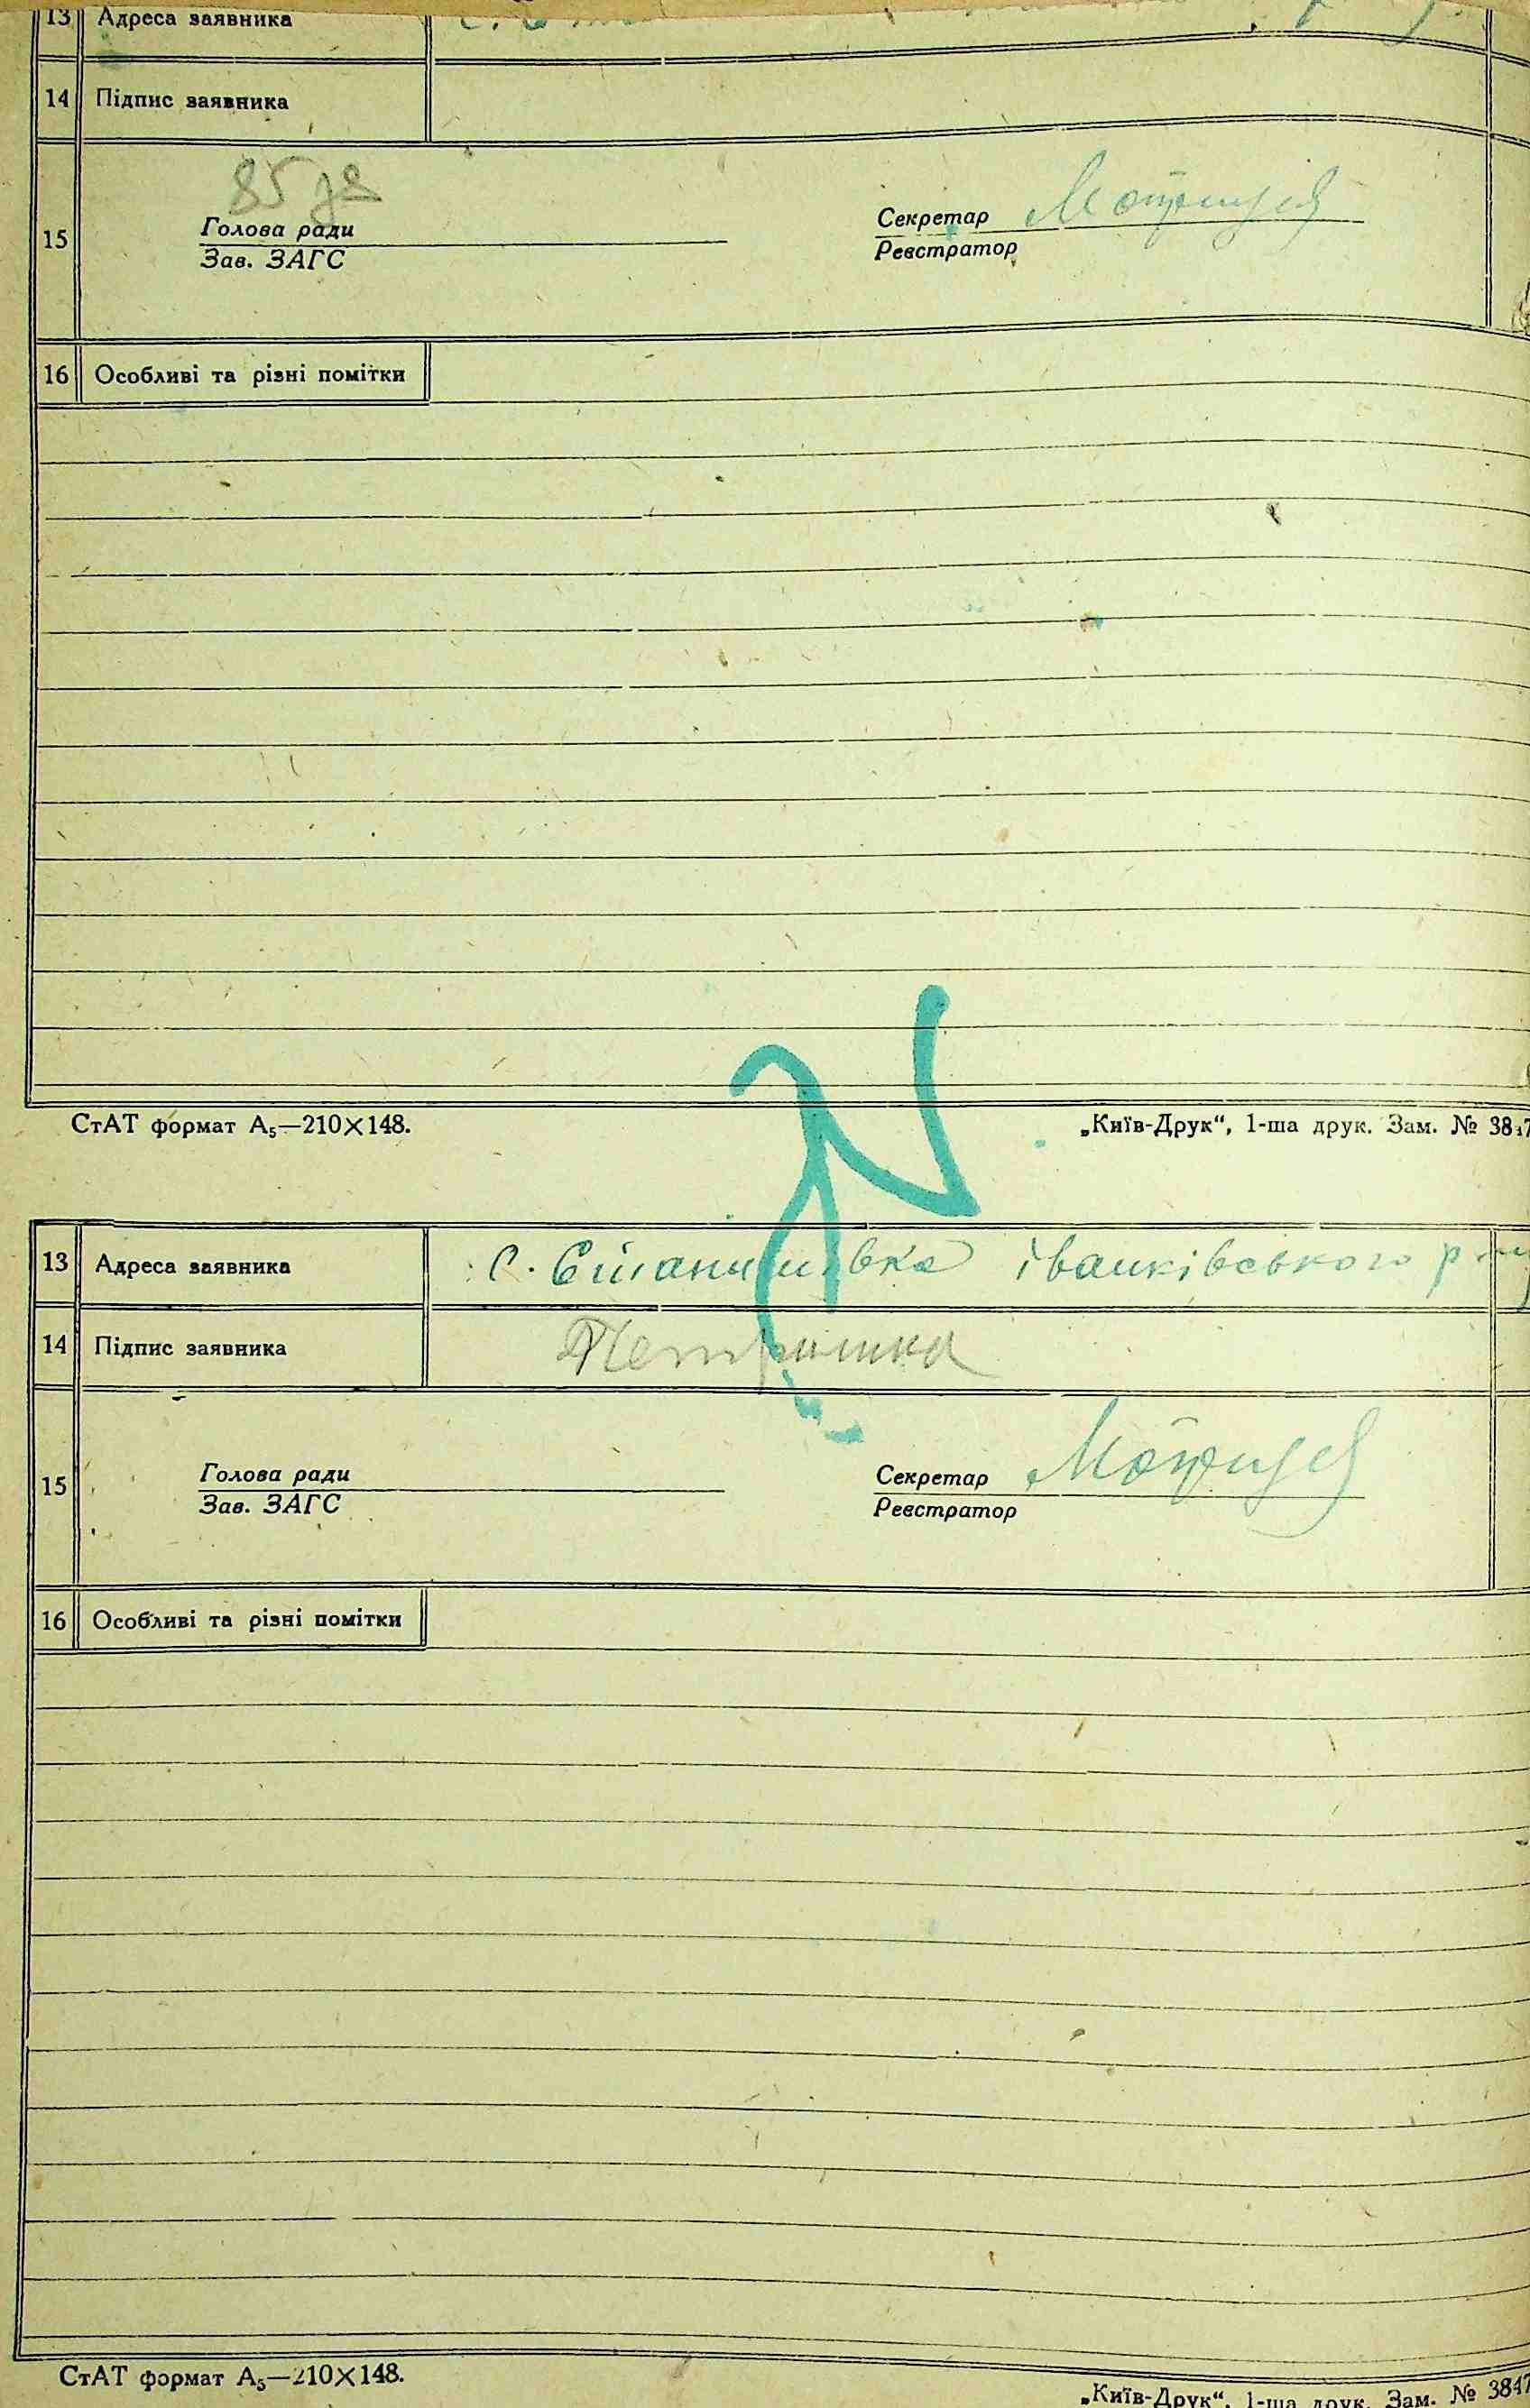 13 Адреса заявника с.
14 Підпис заявника
85
Голова ради Секретар
15
Зав. ЗАГС Реєстратор
16 Особливі та різні помітки
СтАТ формат А₅—210×148. „Київ-Друк“, 1-ша друк. Зам. № 3847
13 Адреса заявника с. Іванківського р-ну
14 Підпис заявника
Голова ради Секретар
15
Зав. ЗАГС Реєстратор
16 Особливі та різні помітки
СтАТ формат А₅—210×148.
„Київ-Друк“, 1-ша друк. Зам. № 3847